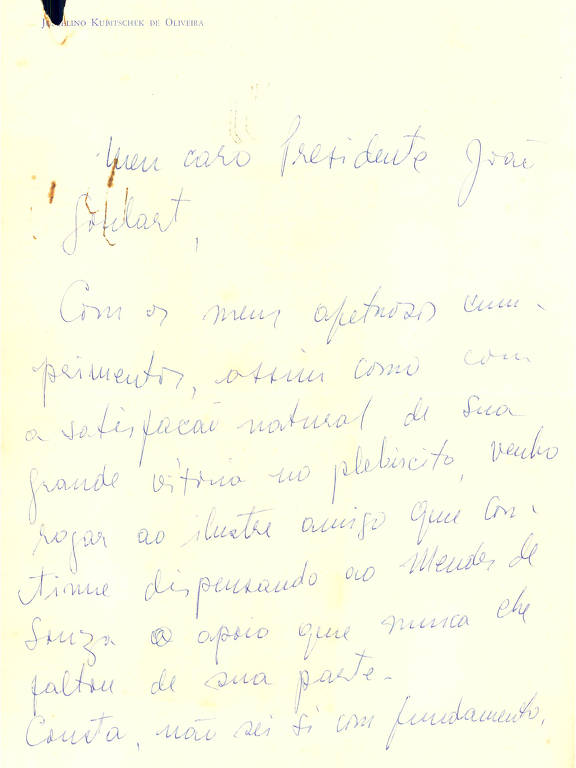 Juscelino Kubitschek de Oliveira
Meu caro Presidente João
Goulart,
Com os meus afetuosos cum-
primentos, assim como com
a satisfação natural de sua
grande vitória no plebiscito, venho
rogar ao ilustre amigo que con-
tinue dispensando ao Mendes de
Souza o apoio que nunca lhe
faltou de sua parte.
Consta, não sei si com fundamento,